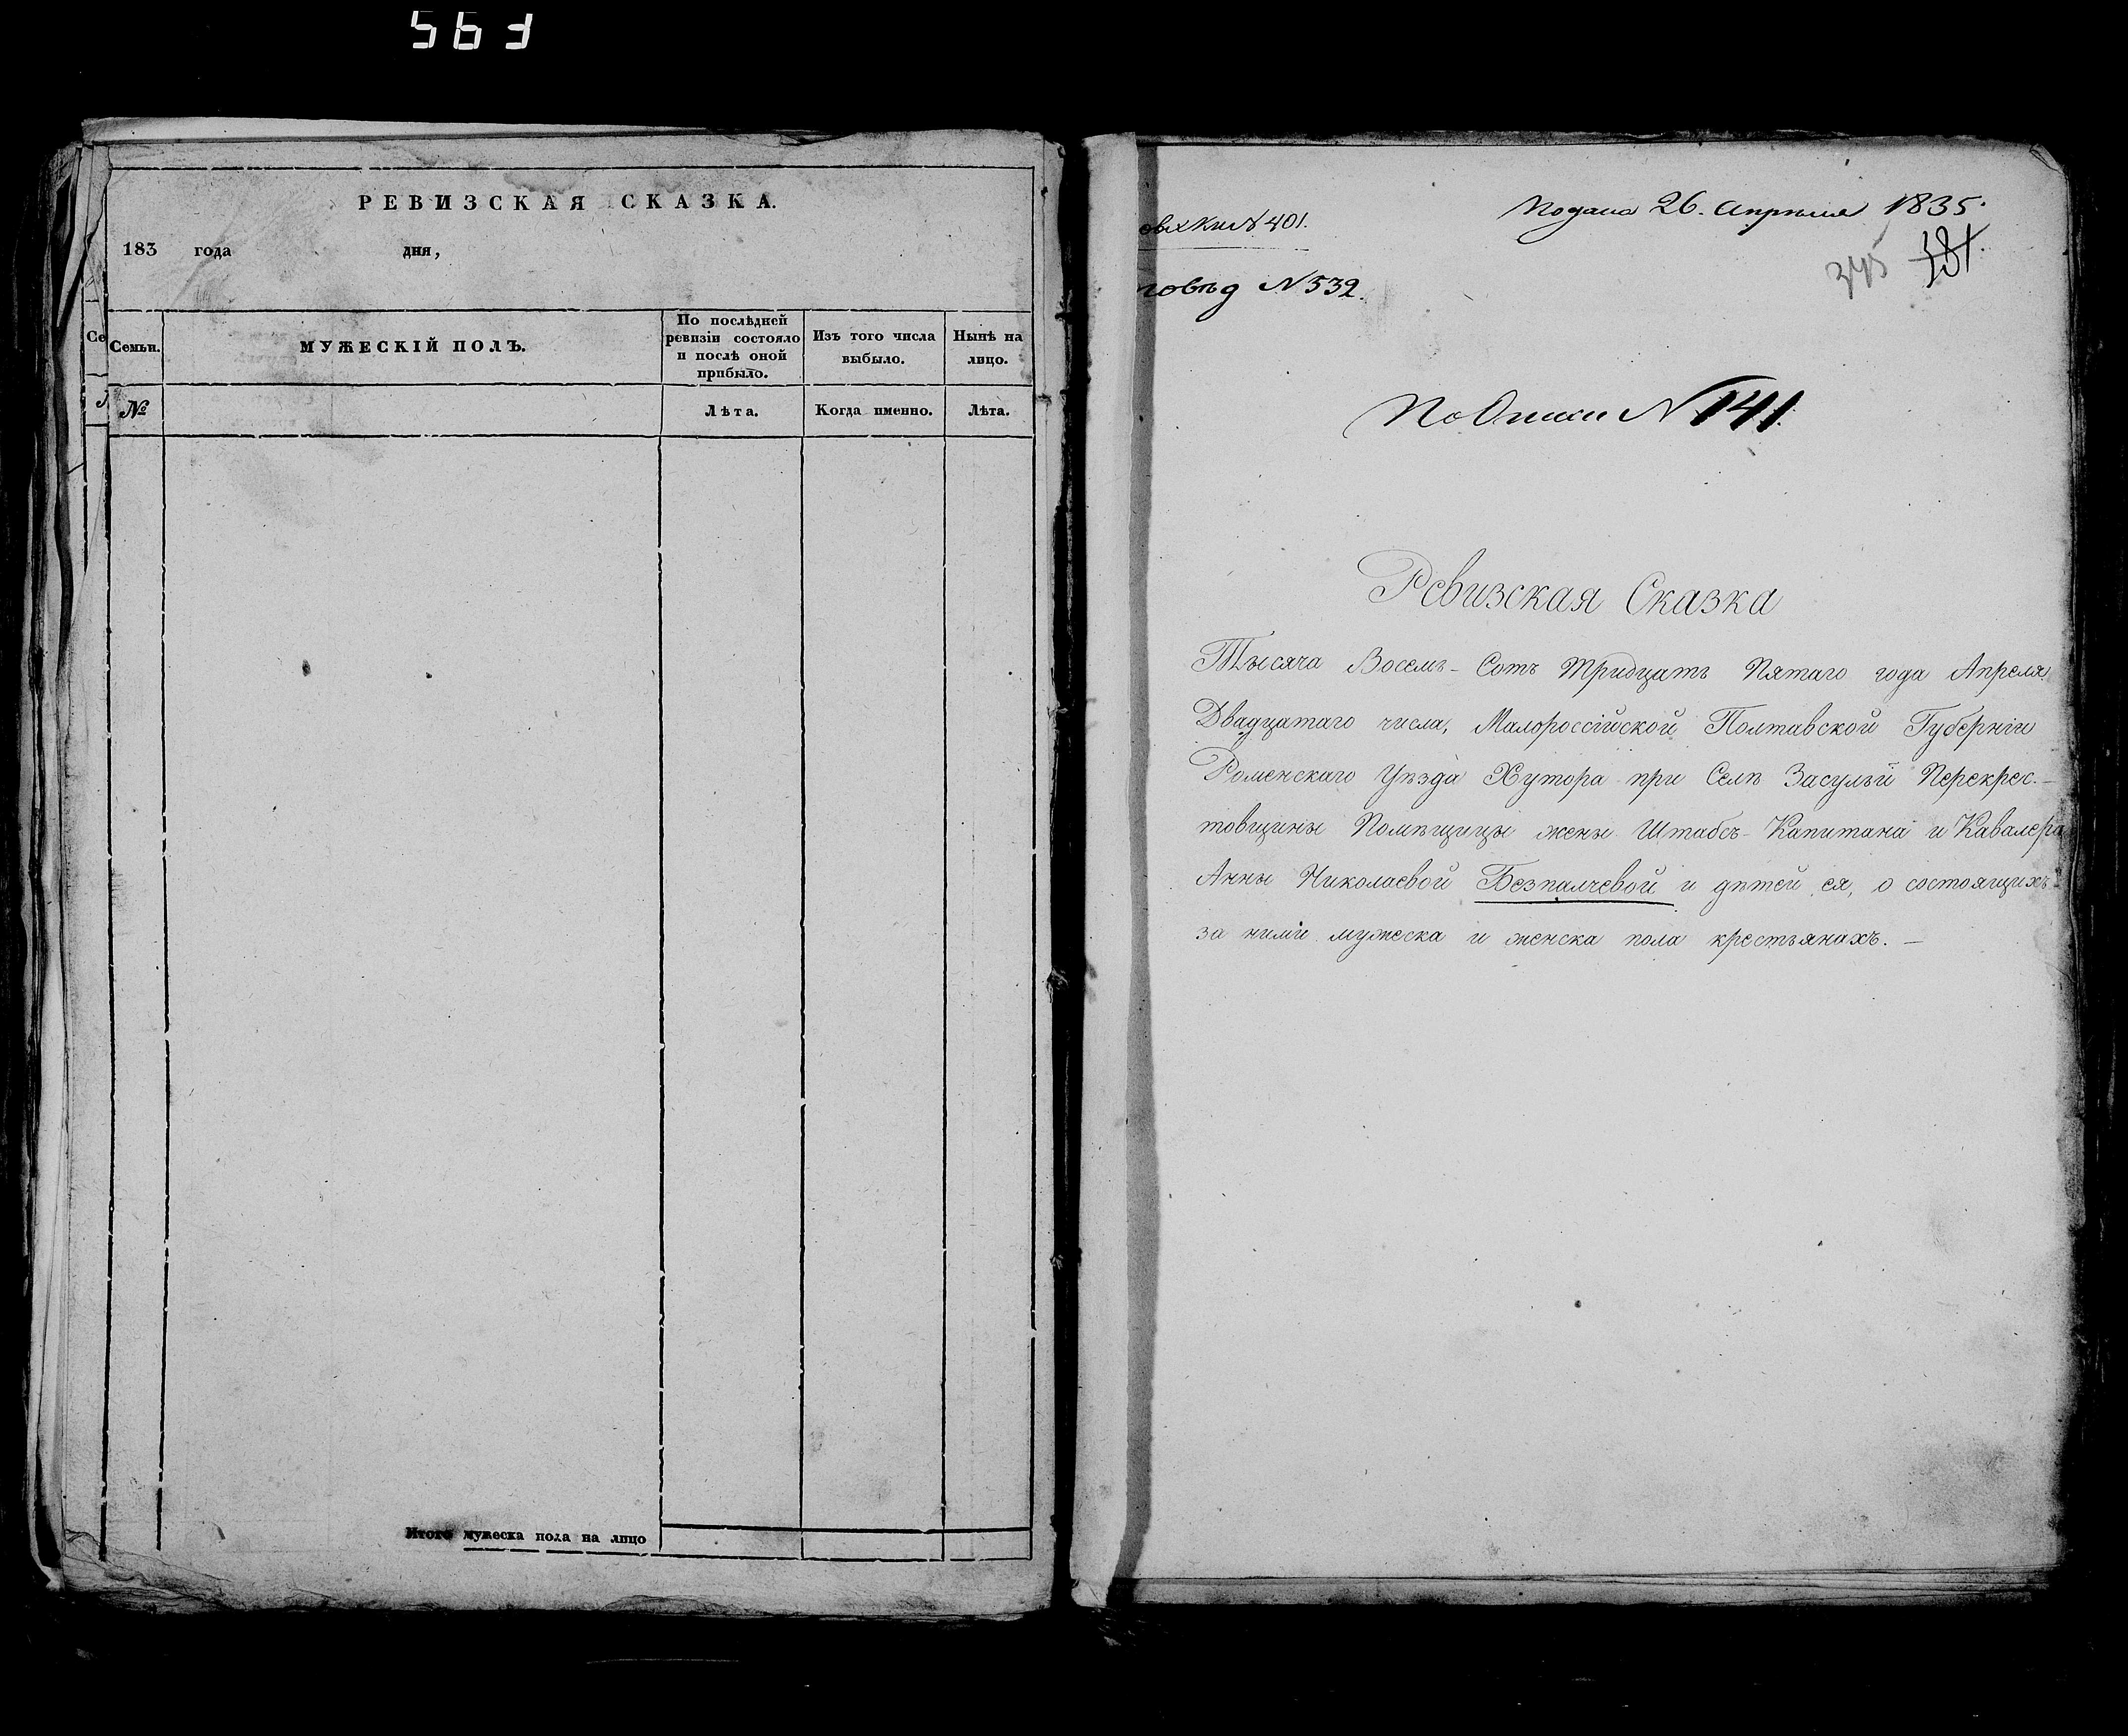 563
РЕВИЗСКАЯ СКАЗКА.
183 года дня,
Се
Семьи.
МУЖЕСКІЙ ПОЛЪ.
По послѣдней
ревизіи состояло
и послѣ оной
прибыло.
Изъ того числа
выбыло.
Нынѣ на
лицо.
№
Лѣта.
Когда именно.
Лѣта.
Итого мужеска пола на лицо
Подана 26. Апрѣля 1835.
овых Ки № 401.
345 381.
повѣд № 532.
По Описи № 141.
Ревизская Сказка
Тысяча Восемь-Сотъ Тридцать Пятаго года Апреля
Двадцатаго числа, Малороссійской Полтавской Губерніи
Роменскаго Уѣзда Хутора при Селѣ Засульи Перекрес.-
товщины Помѣщицы жены Штабсъ-Капитана и Кавалера
Анны Николаевой Безпалчевой и дѣтей ея, о состоящихъ
за ними мужеска и женска пола крестьянахъ. –